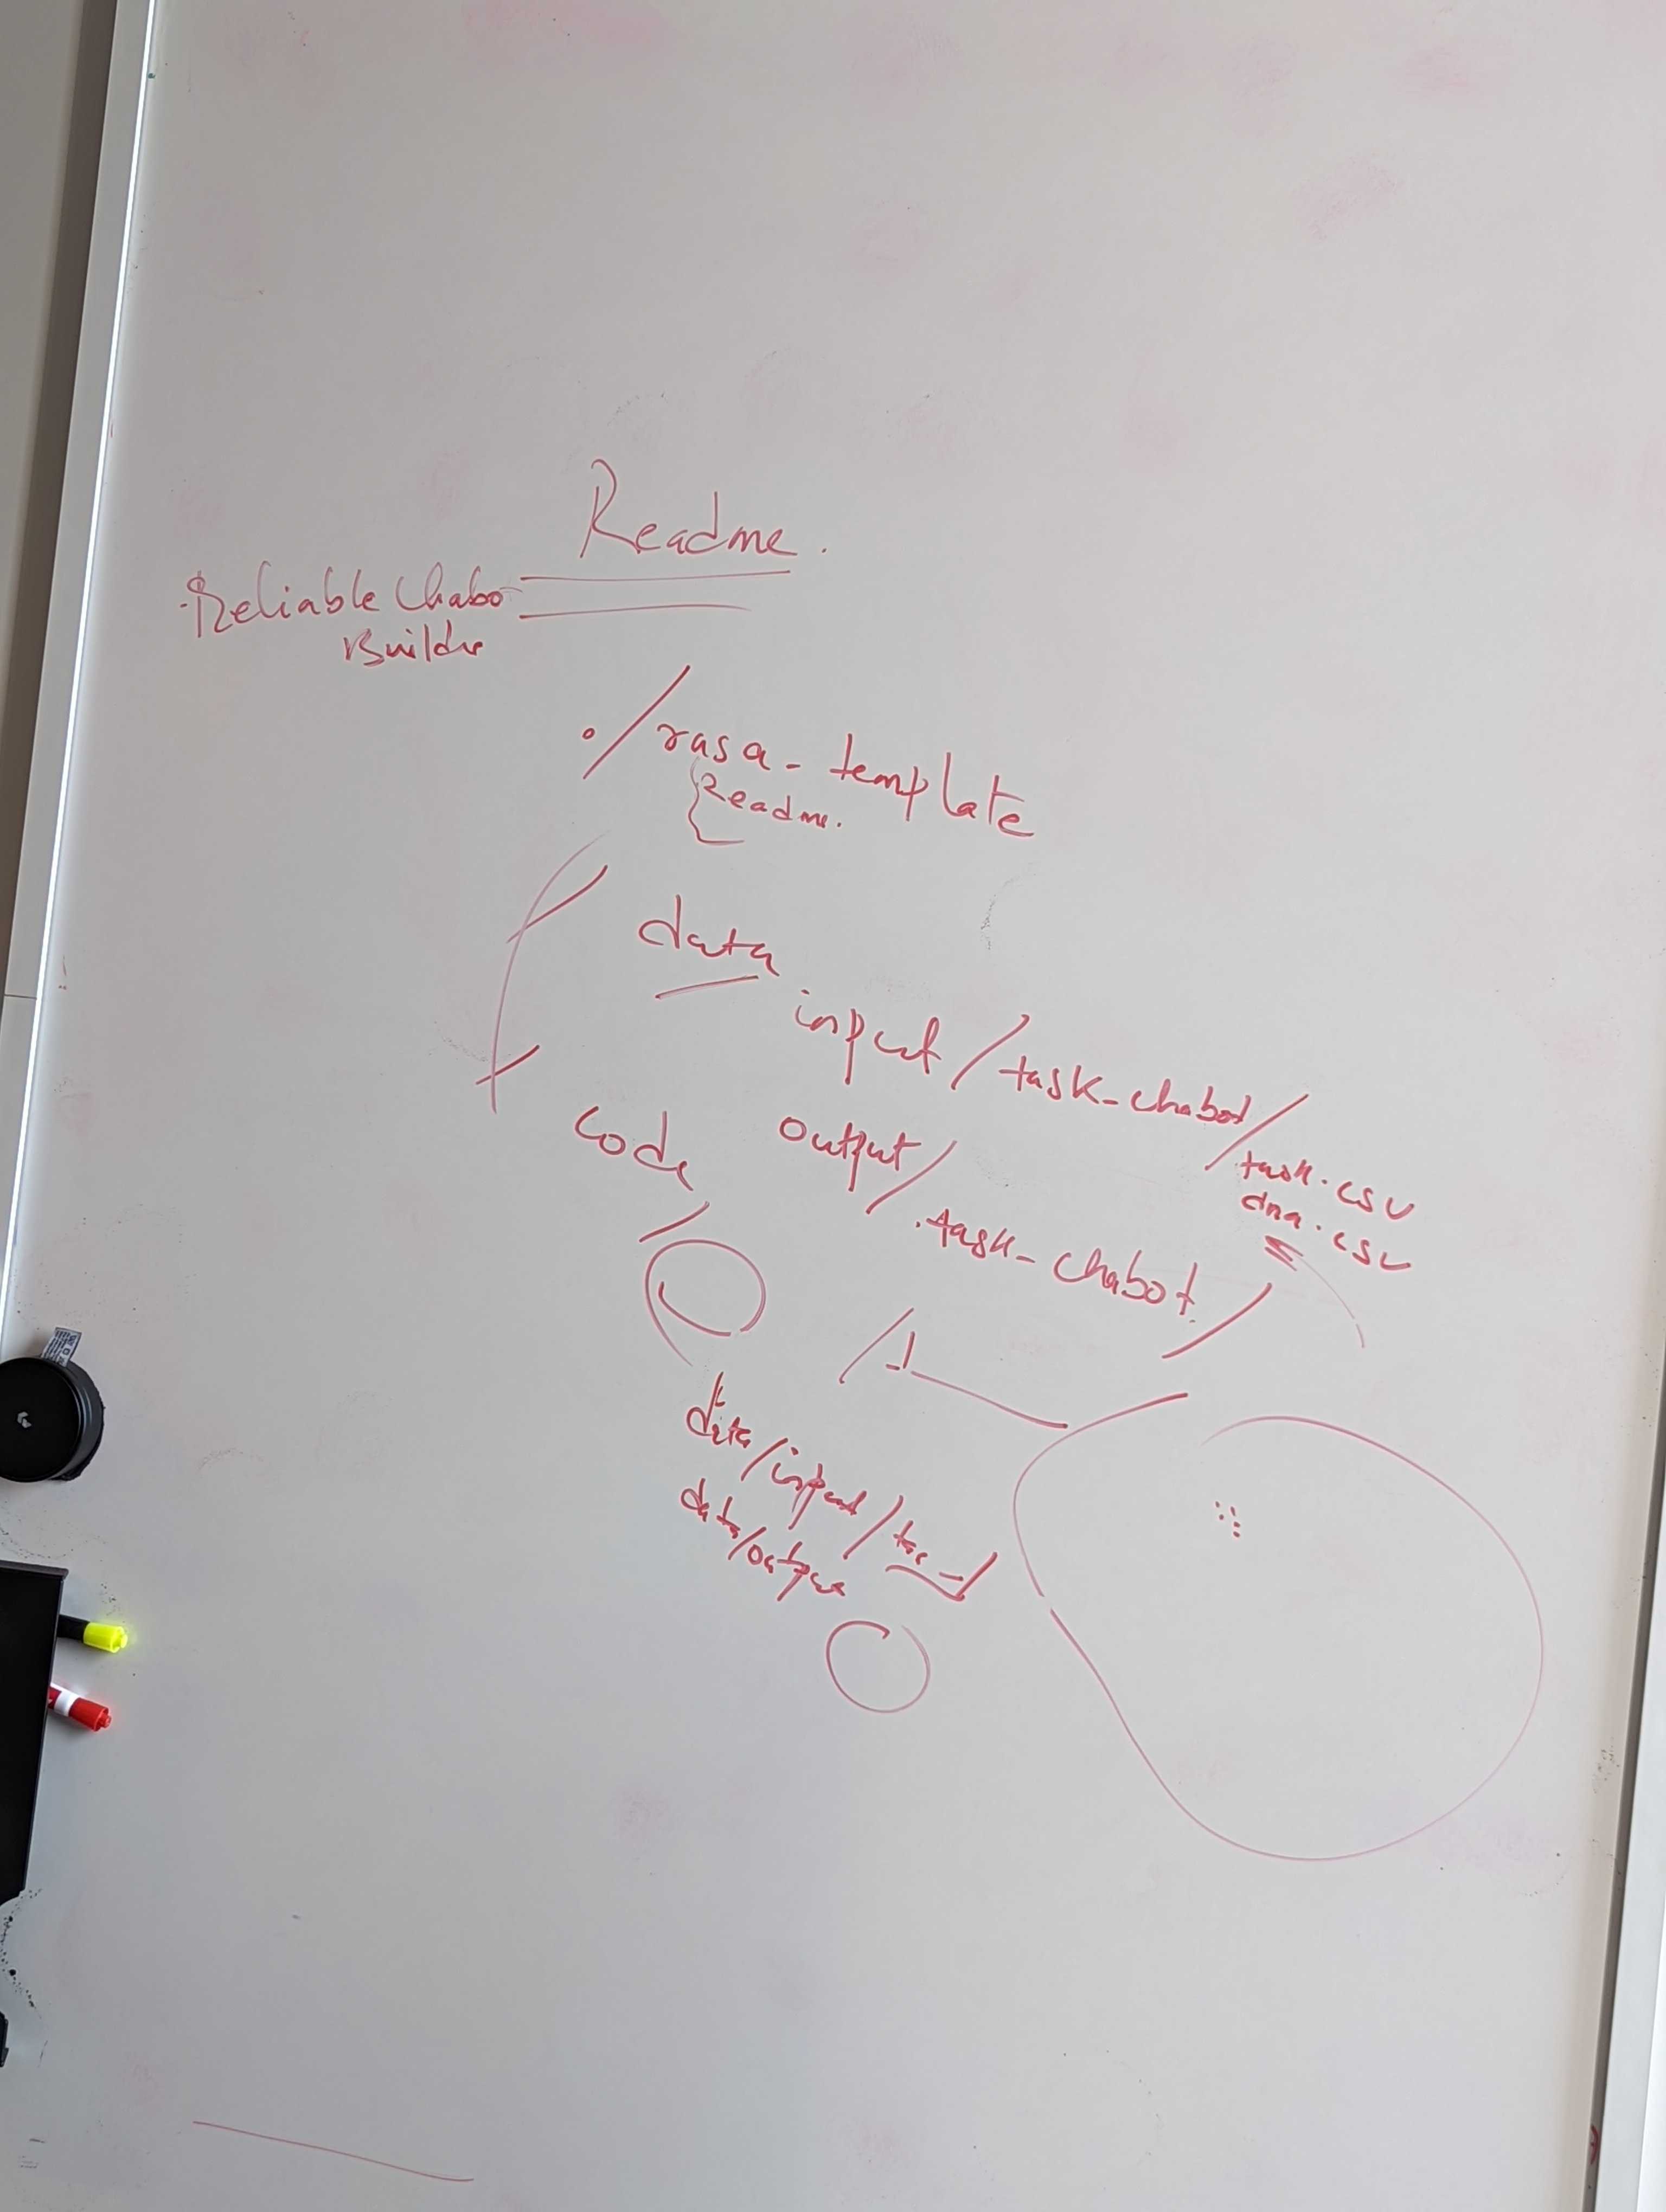 Readme.
Reliable Chabo
Builder
./rasa_template
Readme.
data
input/task_chabot/
task.csv
dna.csv
code
output/.task_chabot/
/
data/input/
data/output